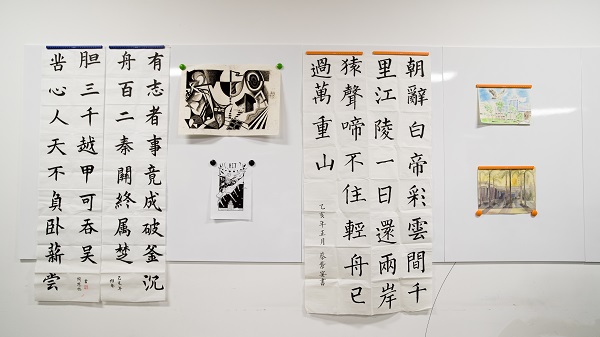 朝辭白帝彩雲間千
里江陵一日還兩岸
猿聲啼不住輕舟已
過萬重山
有志者事竟成破釜沉
舟百二秦關終属楚
苦心人天不負卧薪尝
胆三千越甲可吞吴